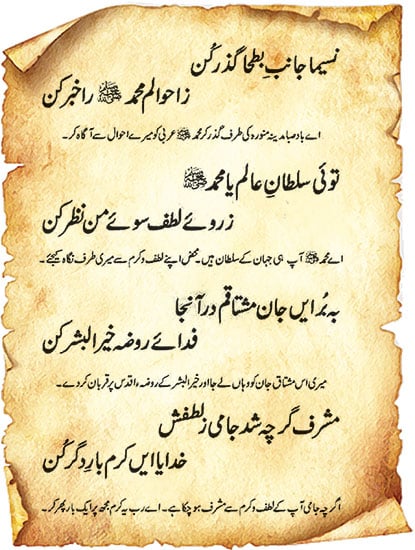 نسیما جانبِ بطحا گذر کُن
ز احوالم محمد ﷺ را خبر کن
اے باد صبا مدینہ منورہ کی طرف گذر کر محمد ﷺ عربی کو میرے احوال سے آگاہ کر۔
توئی سلطانِ عالم یا محمد ﷺ
ز روئے لطف سوئے من نظر کن
اے محمد ﷺ آپ ہی جہان کے سلطان ہیں۔ محض اپنے لطف و کرم سے میری طرف نگاہ کیجئے۔
بہ بُر ایں جان مشتاقم در آنجا
فدائے روضہ خیر البشر کن
میری اس مشتاق جان کو وہاں لے جا اور خیر البشر کے روضۂ اقدس پر قربان کر دے۔
مشرف گرچہ شد جامی ز لطفش
خدایا ایں کرم بارِ دگر کُن
اگرچہ جامی آپ کے لطف و کرم سے مشرف ہو چکا ہے۔ اے رب یہ کرم مجھ پر ایک بار پھر کر۔